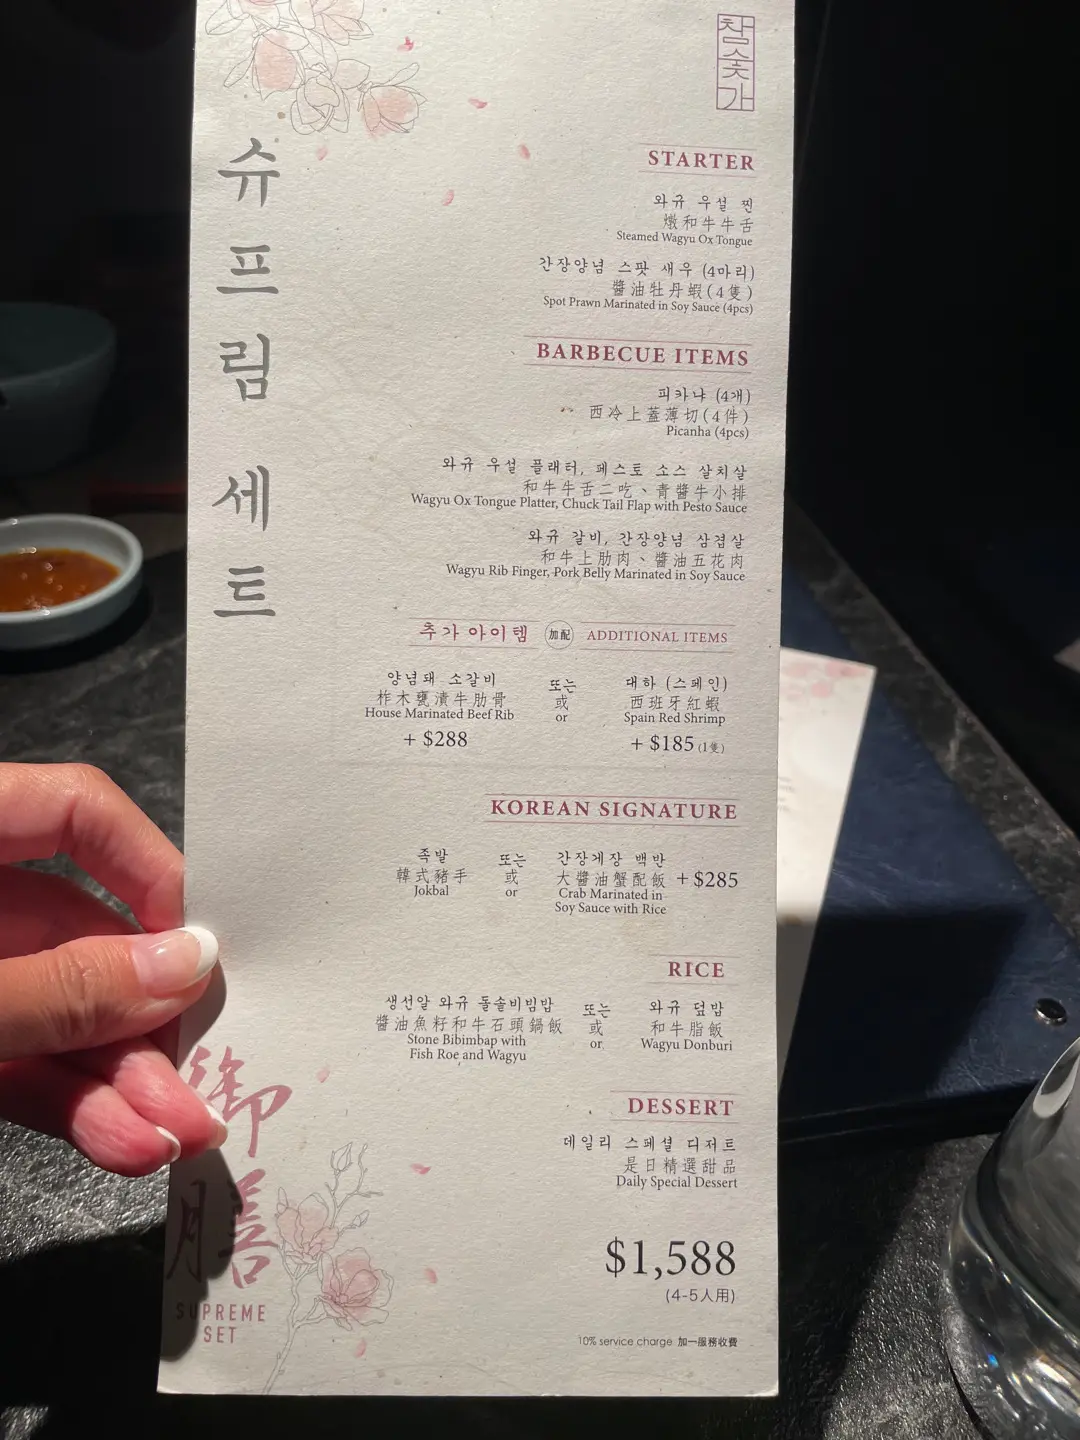 참숯가
슈프림 세트
STARTER
와규 우설 찐
燉和牛牛舌
Steamed Wagyu Ox Tongue
간장양념 스팟 새우 (4마리)
醬油牡丹蝦(4隻)
Spot Prawn Marinated in Soy Sauce (4pcs)
BARBECUE ITEMS
피카냐 (4개)
西冷上蓋薄切(4件)
Picanha (4pcs)
와규 우설 플래터, 페스토 소스 살치살
和牛牛舌二吃、青醬牛小排
Wagyu Ox Tongue Platter, Chuck Tail Flap with Pesto Sauce
와규 갈비, 간장양념 삼겹살
和牛上肋肉、醬油五花肉
Wagyu Rib Finger, Pork Belly Marinated in Soy Sauce
추가 아이템 加配 ADDITIONAL ITEMS
양념돼 소갈비
柞木甕漬牛肋骨
House Marinated Beef Rib
+ $288
또는
或
or
대하 (스페인)
西班牙紅蝦
Spain Red Shrimp
+ $185 (1隻)
KOREAN SIGNATURE
족발
韓式豬手
Jokbal
또는
或
or
간장게장 백반
大醬油蟹配飯 + $285
Crab Marinated in
Soy Sauce with Rice
RICE
생선알 와규 돌솥비빔밥
醬油魚籽和牛石頭鍋飯
Stone Bibimbap with
Fish Roe and Wagyu
또는
或
or
와규 덮밥
和牛脂飯
Wagyu Donburi
DESSERT
데일리 스페셜 디저트
是日精選甜品
Daily Special Dessert
$1,588
(4-5人用)
10% service charge 加一服務收費
御膳
SUPREME
SET